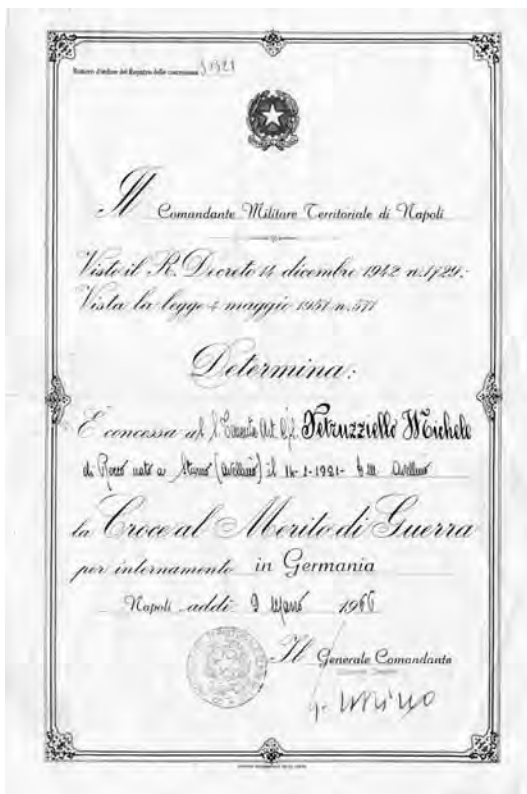 Numero d'ordine del Registro delle concessioni
Il Comandante Militare Territoriale di Napoli
Visto il R. Decreto 14 dicembre 1942 n. 1729:
Vista la legge 4 maggio 1951 n. 571
Determina:
È concessa al Petruzziello Michele
di Rocco nato a Sturno (Avellino) il 14-1-1921- Avellino
la Croce al Merito di Guerra
per internamento in Germania
Napoli addì 9 1966
Il Generale Comandante